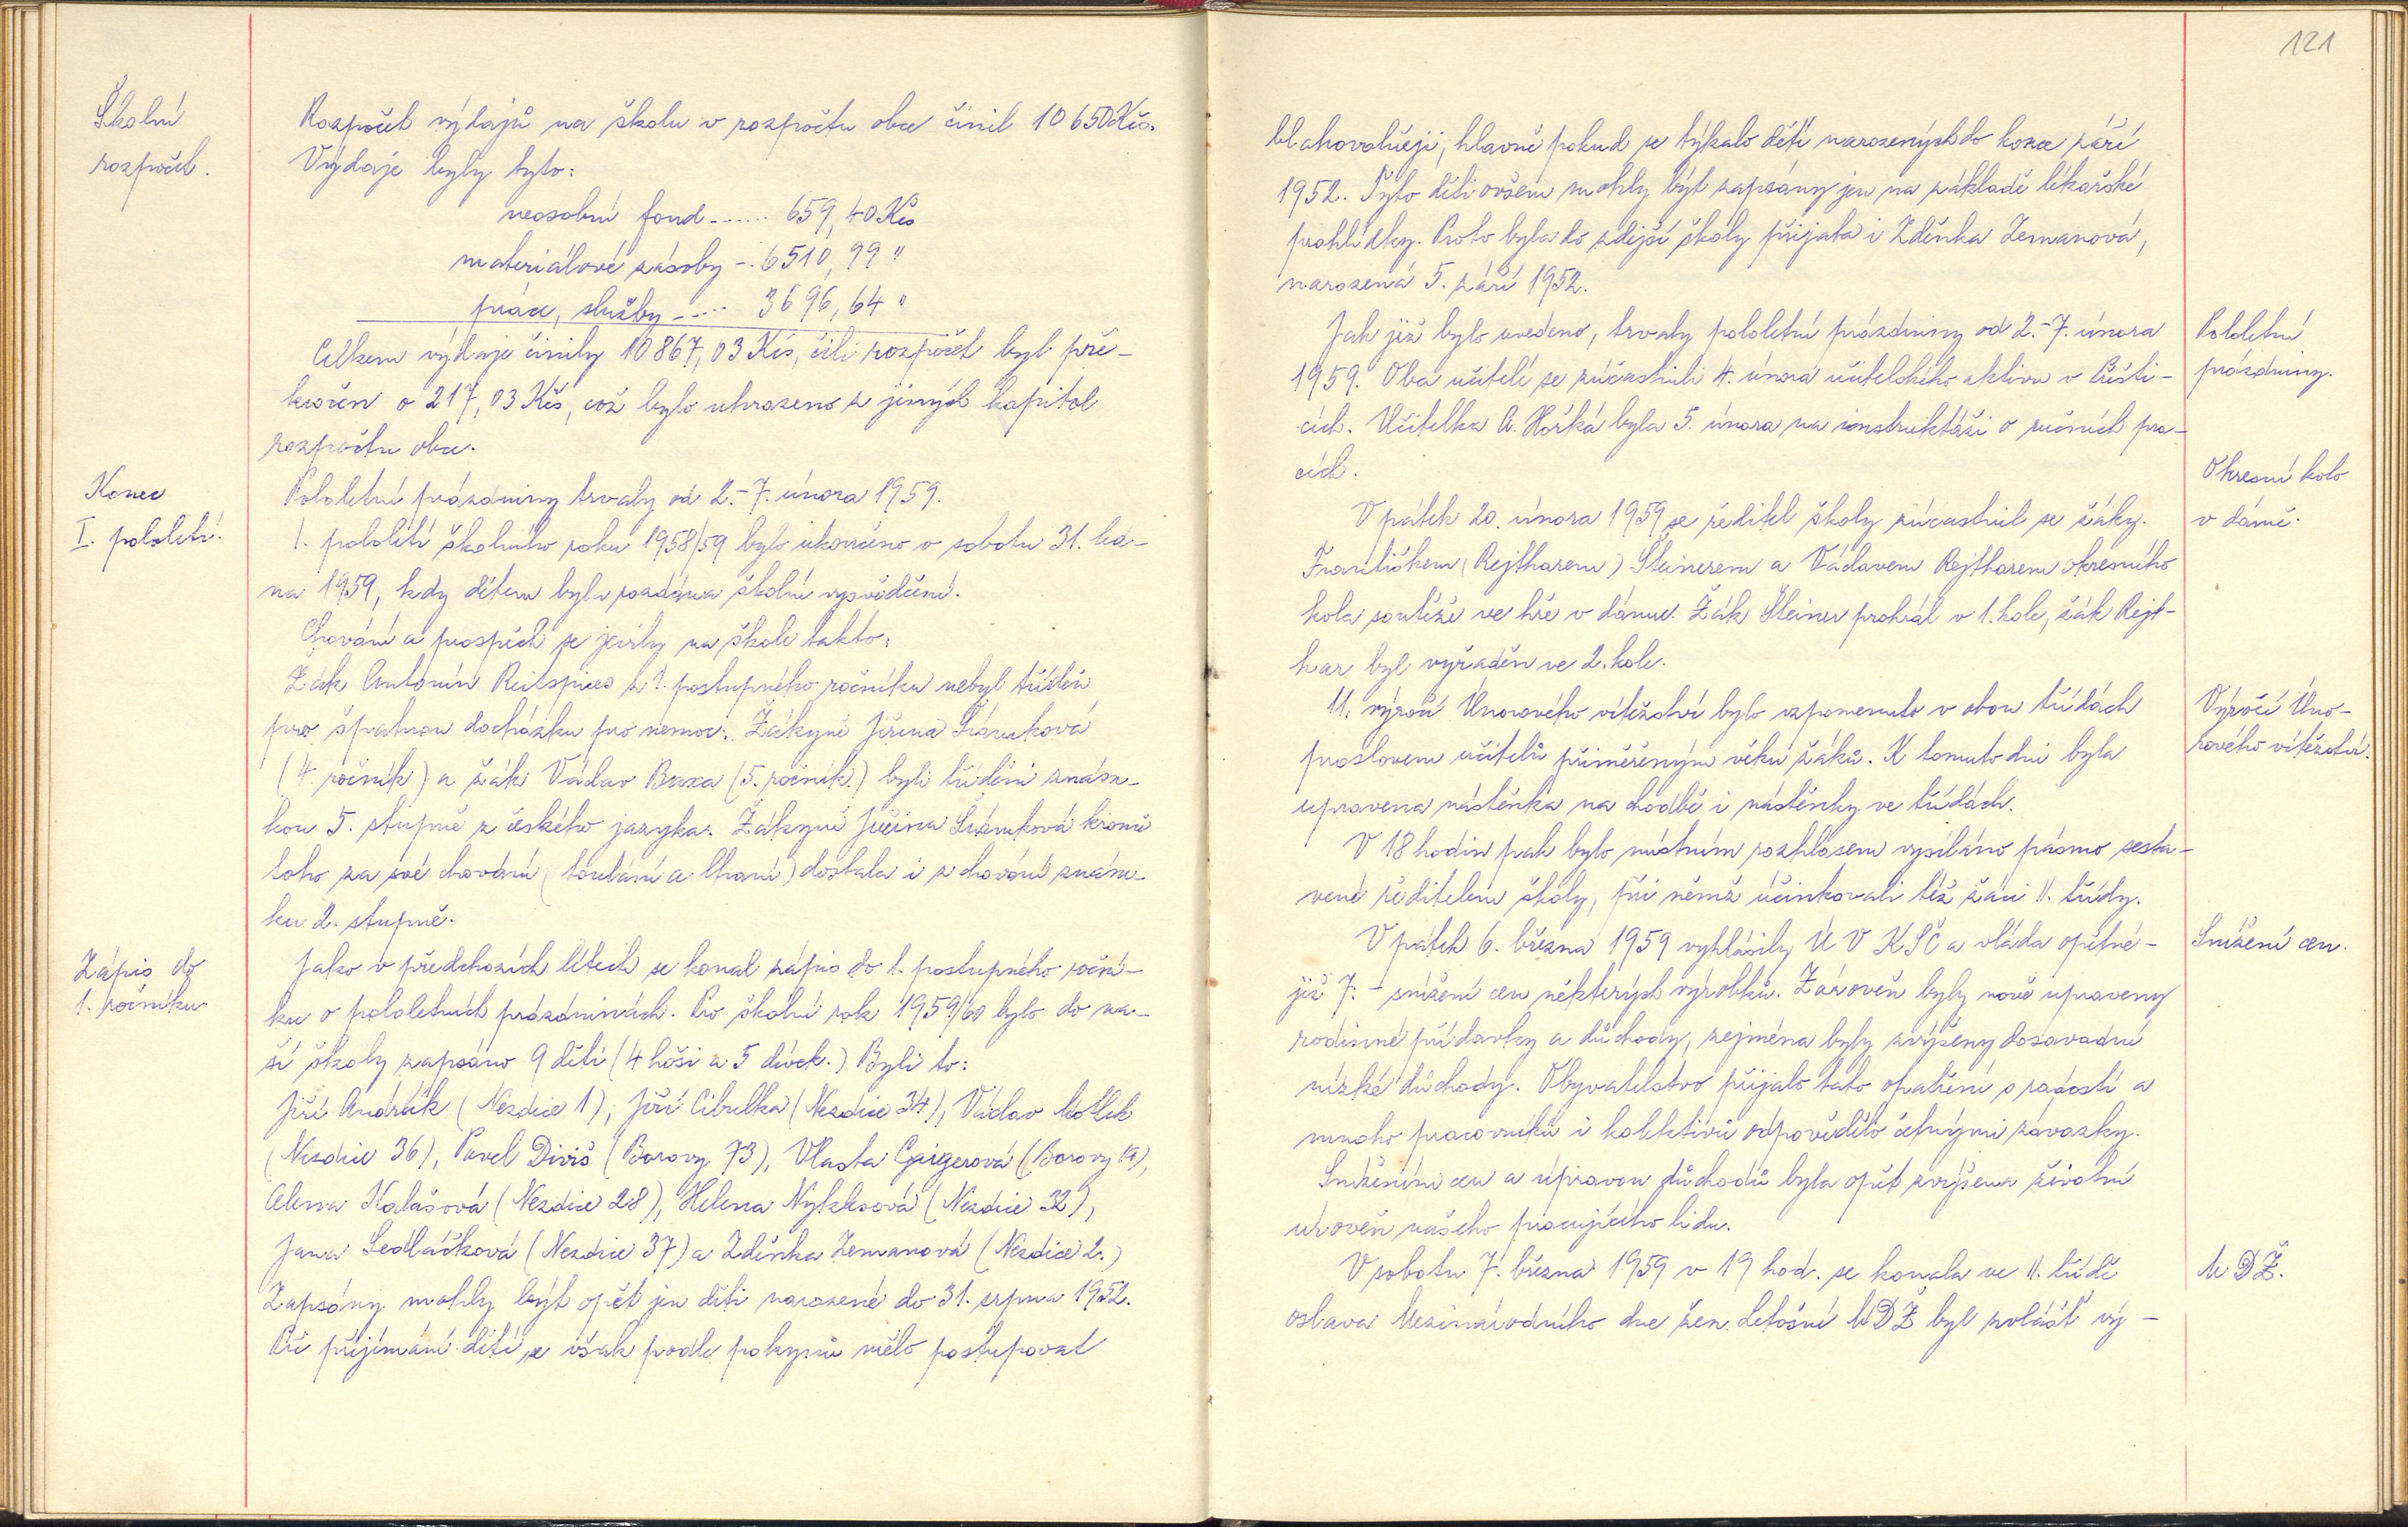 Školní
rozpočet.
Rozpočet výdajů na školu v rozpočtu obce činil 10 650 Kčs.
Výdaje byly tyto:
neosobní fond ...... 659,40 Kčs
materiálové zásoby -. 6510,99 "
práce, služby ..... 3696,64 "
Celkem výdaje činily 10 867,03 Kčs, čili rozpočet byl pře-
kročen o 217,03 Kčs, což bylo uhrazeno z jiných kapitol
rozpočtu obce.
Konec
I. pololetí.
Pololetní prázdniny trvaly od 2.-7. února 1959.
I. pololetí školního roku 1958/59 bylo ukončeno v sobotu 31. led-
na 1959, kdy dětem byla rozdána školní vysvědčení.
Chování a prospěch se jevily na škole takto:
Žák Antonín Reitspies z 1. postupného ročníku nebyl tříděn
pro špatnou docházku pro nemoc. Žákyně Jiřina Šrámková
(4. ročník) a žák Václav Baxa (5. ročník.) byli tříděni znám-
kou 5. stupně z českého jazyka. Žákyně Jiřina Šrámková kromě
toho za své chování (toulání a lhaní) dostala i z chování znám-
ku 2. stupně.
Zápis do
1. ročníku
Jako v předchozích letech se konal zápis do 1. postupného roční-
ku o pololetních prázdninách. Pro školní rok 1959/60 bylo do na-
ší školy zapsáno 9 dětí (4 hoši a 5 dívek.) Byli to:
Jiří Andrlík (Nezdice 1), Jiří Cibulka (Nezdice 34), Václav Motlík
(Nezdice 36), Pavel Diviš (Borovy 73), Vlasta Geigerová (Borovy 19),
Alena Kalašová (Nezdice 28), Helena Nyklesová (Nezdice 32),
Jana Sedláčková (Nezdice 37) a Zdeňka Zemanová (Nezdice 2.)
Zapsány mohly být opět jen děti narozené do 31. srpna 1952.
Při přijímání dětí se však podle pokynů mělo postupovat
121
blahovolněji, hlavně pokud se týkalo dětí narozených do konce září
1952. Tyto děti ovšem mohly být zapsány jen na základě lékařské
prohlídky. Proto byla do zdejší školy přijata i Zdeňka Zemanová,
narozená 5. září 1952.
Pololetní
prázdniny.
Jak již bylo uvedeno, trvaly pololetní prázdniny od 2.-7. února
1959. Oba učitelé se zúčastnili 4. února učitelského aktivu v Přešti-
cích. Učitelka A. Hořká byla 5. února na instruktáži o ručních pra-
cích.
Okresní kolo
v dámě.
V pátek 20. února 1959 se ředitel školy zúčastnil se žáky
Františkem (Rejtharem) Šteinerem a Václavem Rejtharem okresního
kola soutěže ve hře v dámu. Žák Šteiner prohrál v 1. kole, žák Rejt-
har byl vyřaděn ve 2. kole.
Výročí Úno-
rového vítězství.
11. výročí Únorového vítězství bylo vzpomenuto v obou třídách
proslovem učitelů přiměřeným věku žáků. K tomuto dni byla
upravena nástěnka na chodbě i nástěnky ve třídách.
V 18 hodin pak bylo místním rozhlasem vysíláno pásmo sesta-
vené ředitelem školy, při němž účinkovali též žáci II. třídy.
Snížení cen.
V pátek 6. března 1959 vyhlásily ÚV KSČ a vláda opětné -
již 7. - snížení cen některých výrobků. Zároveň byly nově upraveny
rodinné přídavky a důchody, zejména byly zvýšeny dosavadní
nízké důchody. Obyvatelstvo přijalo tato opatření s radostí a
mnoho pracovníků i kolektivů odpovědělo četnými závazky.
Snížením cen a úpravou důchodů byla opět zvýšena životní
úroveň našeho pracujícího lidu.
MDŽ.
V sobotu 7. března 1959 v 19 hod. se konala ve II. třídě
oslava Mezinárodního dne žen. Letošní MDŽ byl zvlášť vý-